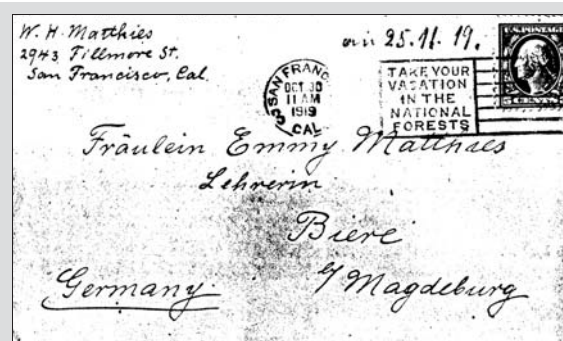 W. H. Matthies
2943 Fillmore St.
San Francisco, Cal.
an 25.11.19.
SAN FRANC
OCT 30
11 AM
1919
CAL
TAKE YOUR
VACATION
IN THE
NATIONAL
FORESTS
U.S. POSTAGE
Fräulein Emmy Matthies
Lehrerin
Biere
b/ Magdeburg
Germany.